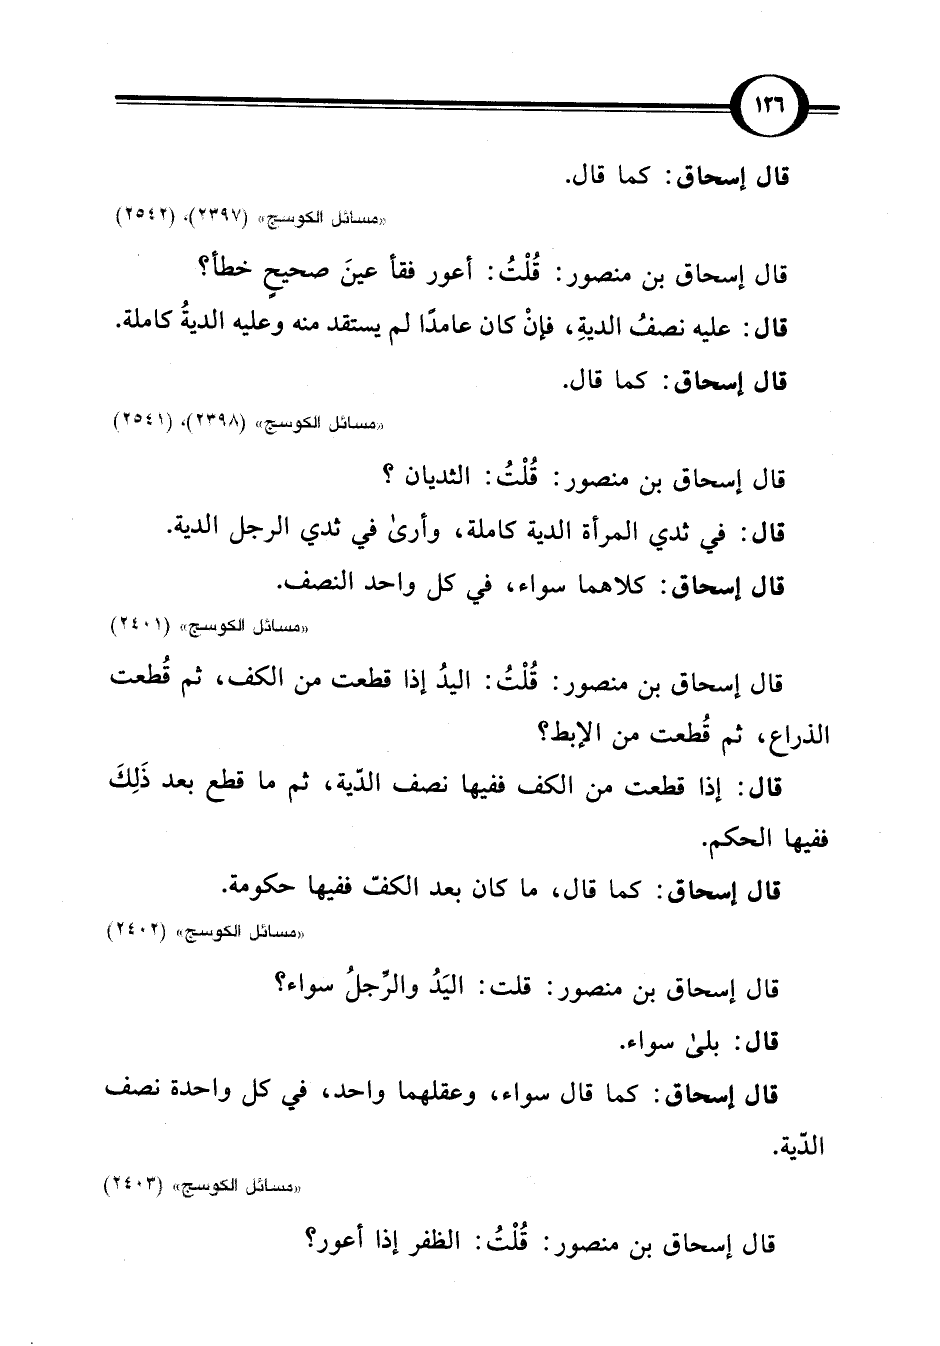 ١٢٦
قال إسحاق: كما قال.
«مسائل الكوسج» (٢٣٩٧)، (٢٥٤٢)
قال إسحاق بن منصور: قُلْتُ: أعور فقأ عينَ صحيحٍ خطأ؟
قال: عليه نصفُ الديةِ، فإنْ كان عامدًا لم يستقد منه وعليه الديةُ كاملة.
قال إسحاق: كما قال.
«مسائل الكوسج» (٢٣٩٨)، (٢٥٤١)
قال إسحاق بن منصور: قُلْتُ: الثديان ؟
قال: في ثدي المرأة الدية كاملة، وأرىٰ في ثدي الرجل الدية.
قال إسحاق: كلاهما سواء، في كل واحد النصف.
«مسائل الكوسج» (٢٤٠١)
قال إسحاق بن منصور: قُلْتُ: اليدُ إذا قطعت من الكف، ثم قُطعت
الذراع، ثم قُطعت من الإبط؟
قال: إذا قطعت من الكف ففيها نصف الدّية، ثم ما قطع بعد ذَلِكَ
ففيها الحكم.
قال إسحاق: كما قال، ما كان بعد الكفّ ففيها حكومة.
«مسائل الكوسج» (٢٤٠٢)
قال إسحاق بن منصور: قلت: اليَدُ والرِّجلُ سواء؟
قال: بلىٰ سواء.
قال إسحاق: كما قال سواء، وعقلهما واحد، في كل واحدة نصف
الدّية.
«مسائل الكوسج» (٢٤٠٣)
قال إسحاق بن منصور: قُلْتُ: الظفر إذا أعور؟